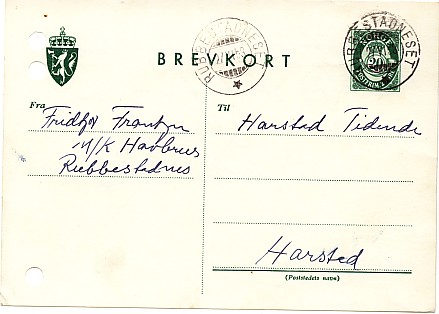 BREVKORT
RUBBESTADNESET
RUBBESTADNESET
NORGE
20
Fra
Fridtjof Frantzen
M/K Havbrus
Rubbestadnes
Til
Harstad Tidende
Harstad
(Poststedets navn)